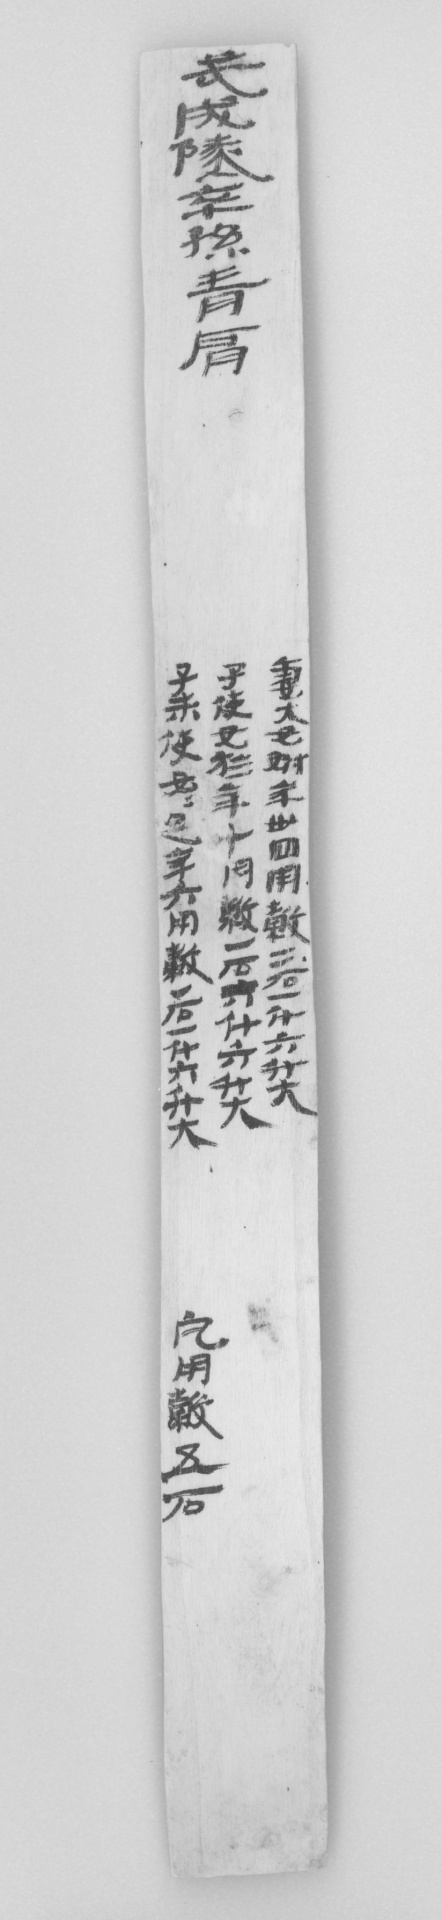 武成隧卒孫青肩
妻大女謝年卅四用穀二石一斗六升大
子使女於年十用穀一石六斗六升大
子未使女〻足年六用穀一石一斗六升大
凡用穀五石